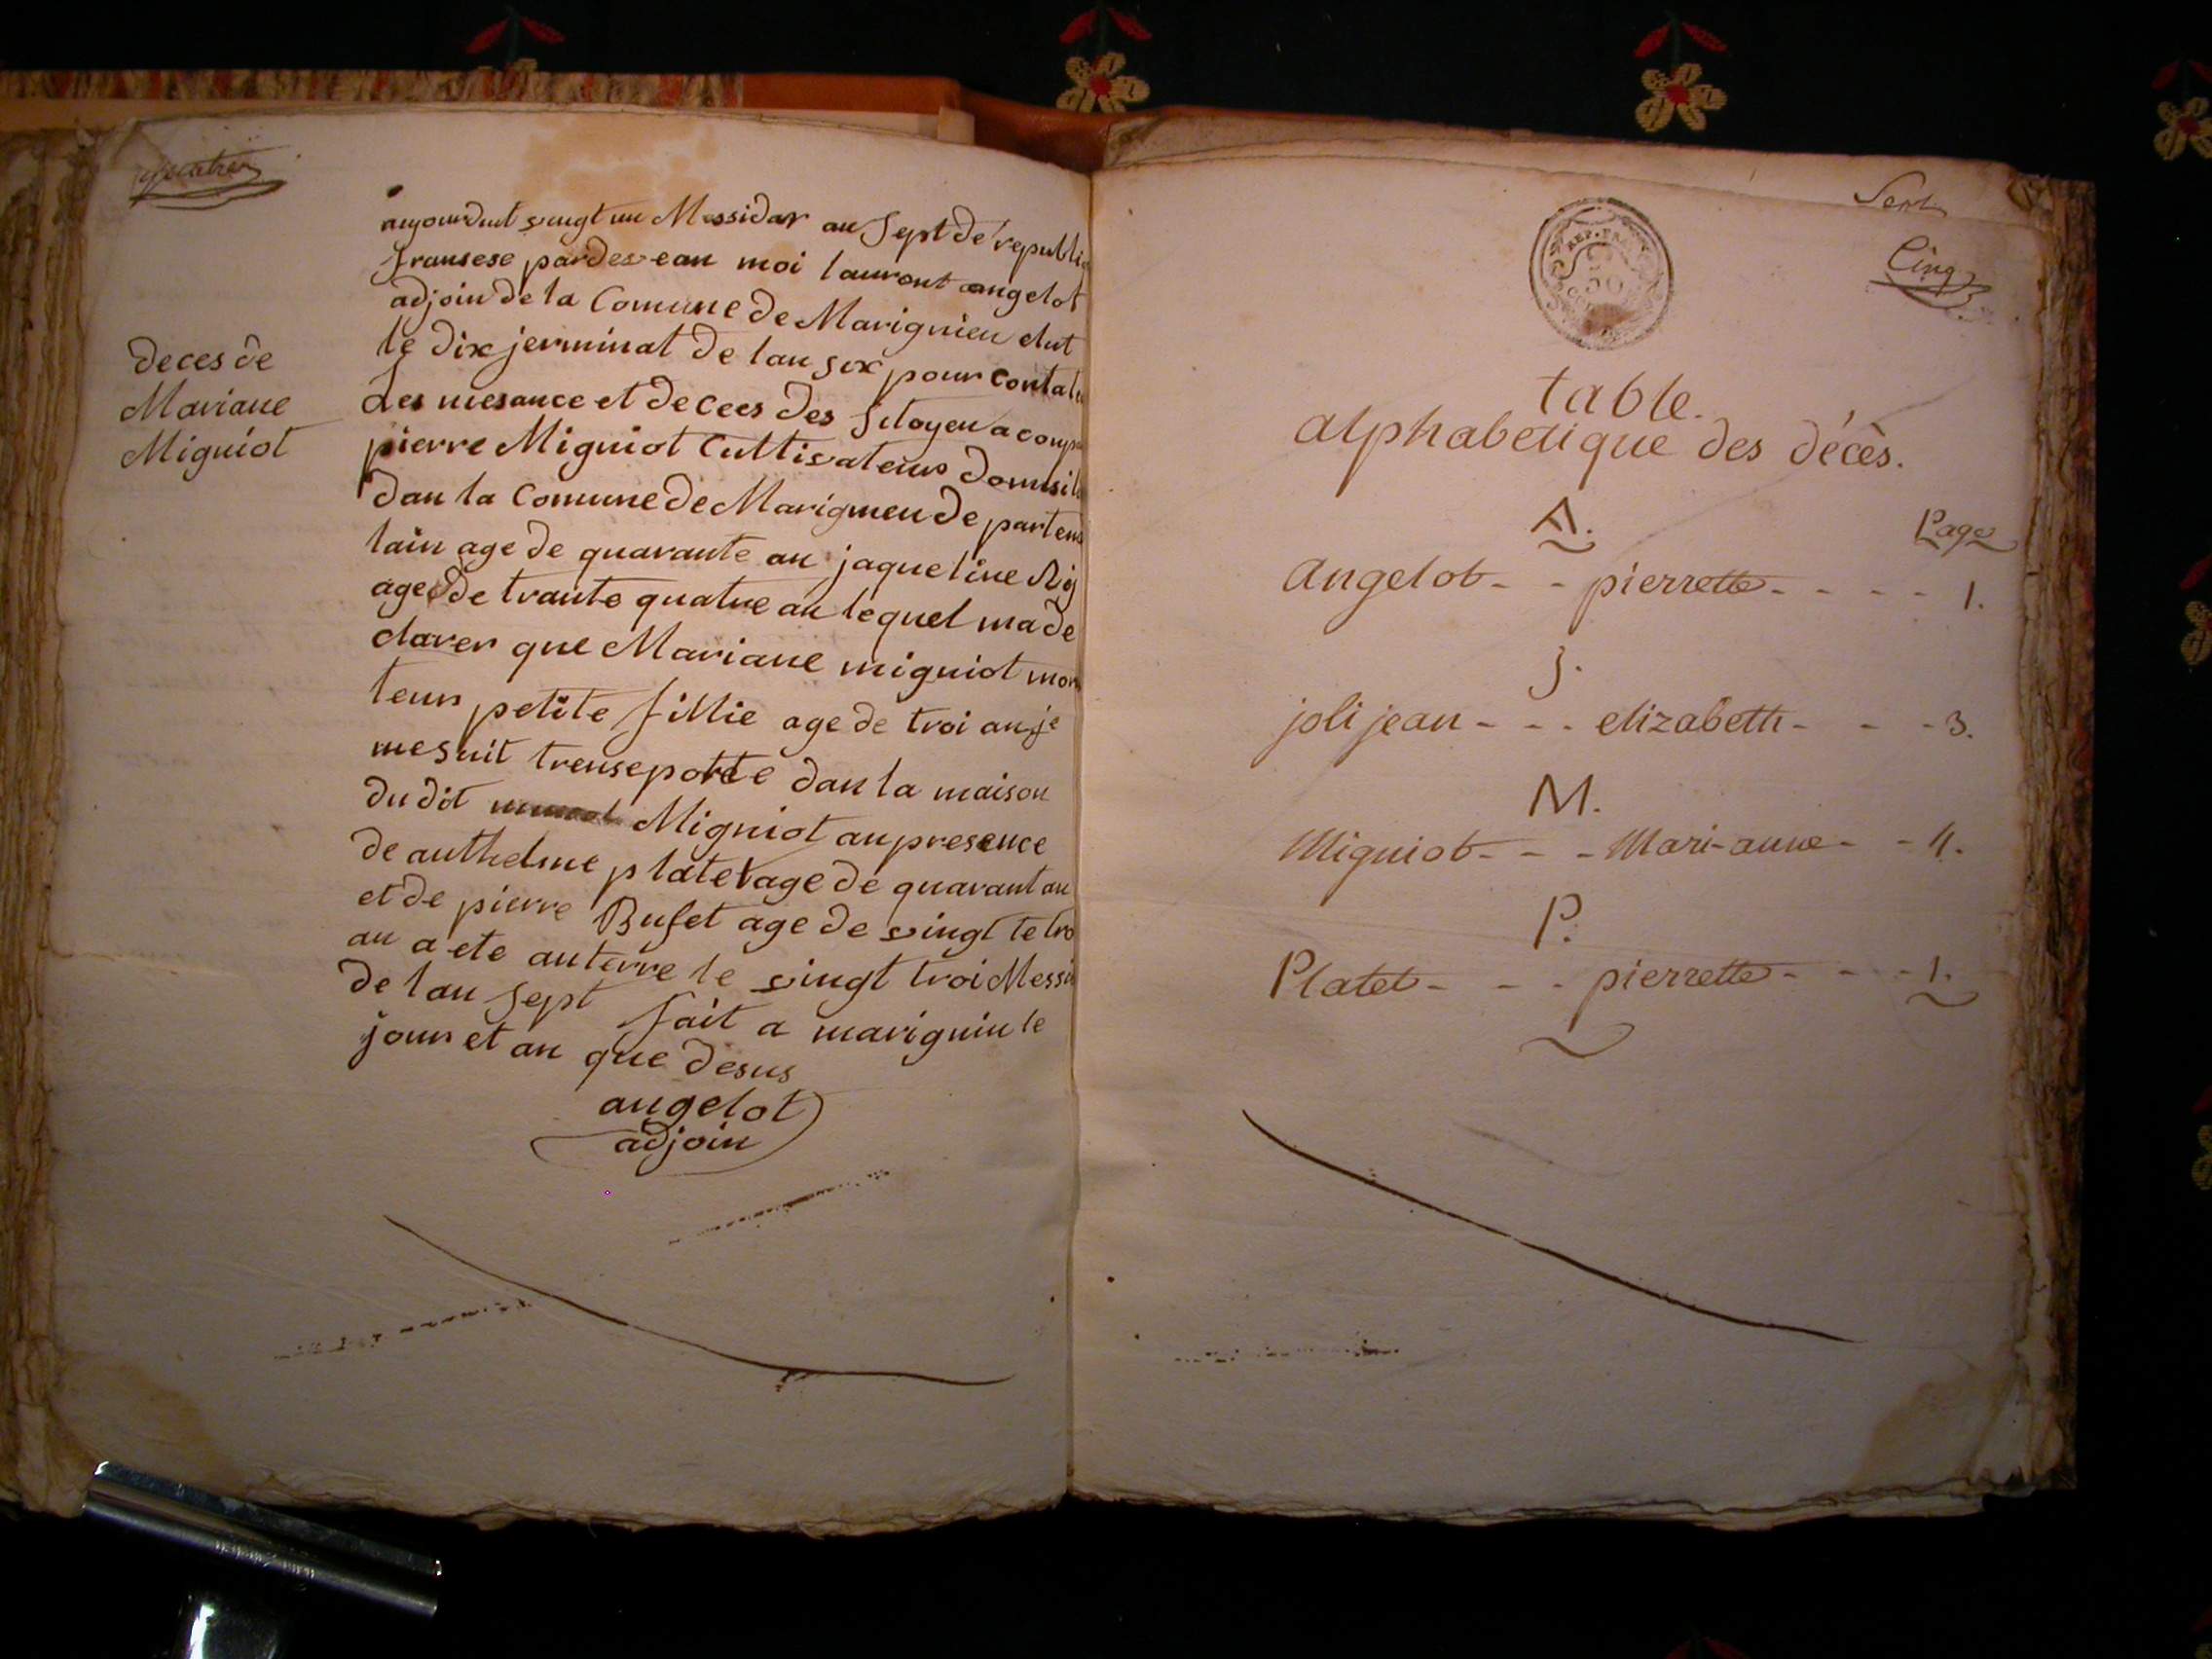 quatre
deces de
Mariane
Migniot
aujourduit vingt un Messidor an Sept de republi
fransese pardevean moi lauront angelot
adjoin de la Comune de Marignieu elut
le dix jerminat de lan six pour contate
les nesance et decees des sitoyen a compa
pierre Migniot Cultivateur domisile
dan la Comune de Marignieu departem
lain age de quarante an jaqueline
age de trante quatre an lequel ma de
clarer que Mariane migniot mor
leur petite fillie age de troi an je
me suit trenseporte dan la maison
du dit Migniot an presence
de anthelme platet age de quarant an
et de pierre Bufet age de vingt te tro
an a ete anterre le vingt troi Messi
de lan sept fait a marigniu le
jour et an que desus
angelot
adjoin
Sept
Cinq
REP. FRA
table
alphabetique des décès.
A. Page
Angelot - - pierrette - - - - 1.
J.
joli jean - - - elizabeth - - - 3.
M.
Migniot - - - Mari-anne - - 4.
P.
Platet - - - pierrette - - - 1.